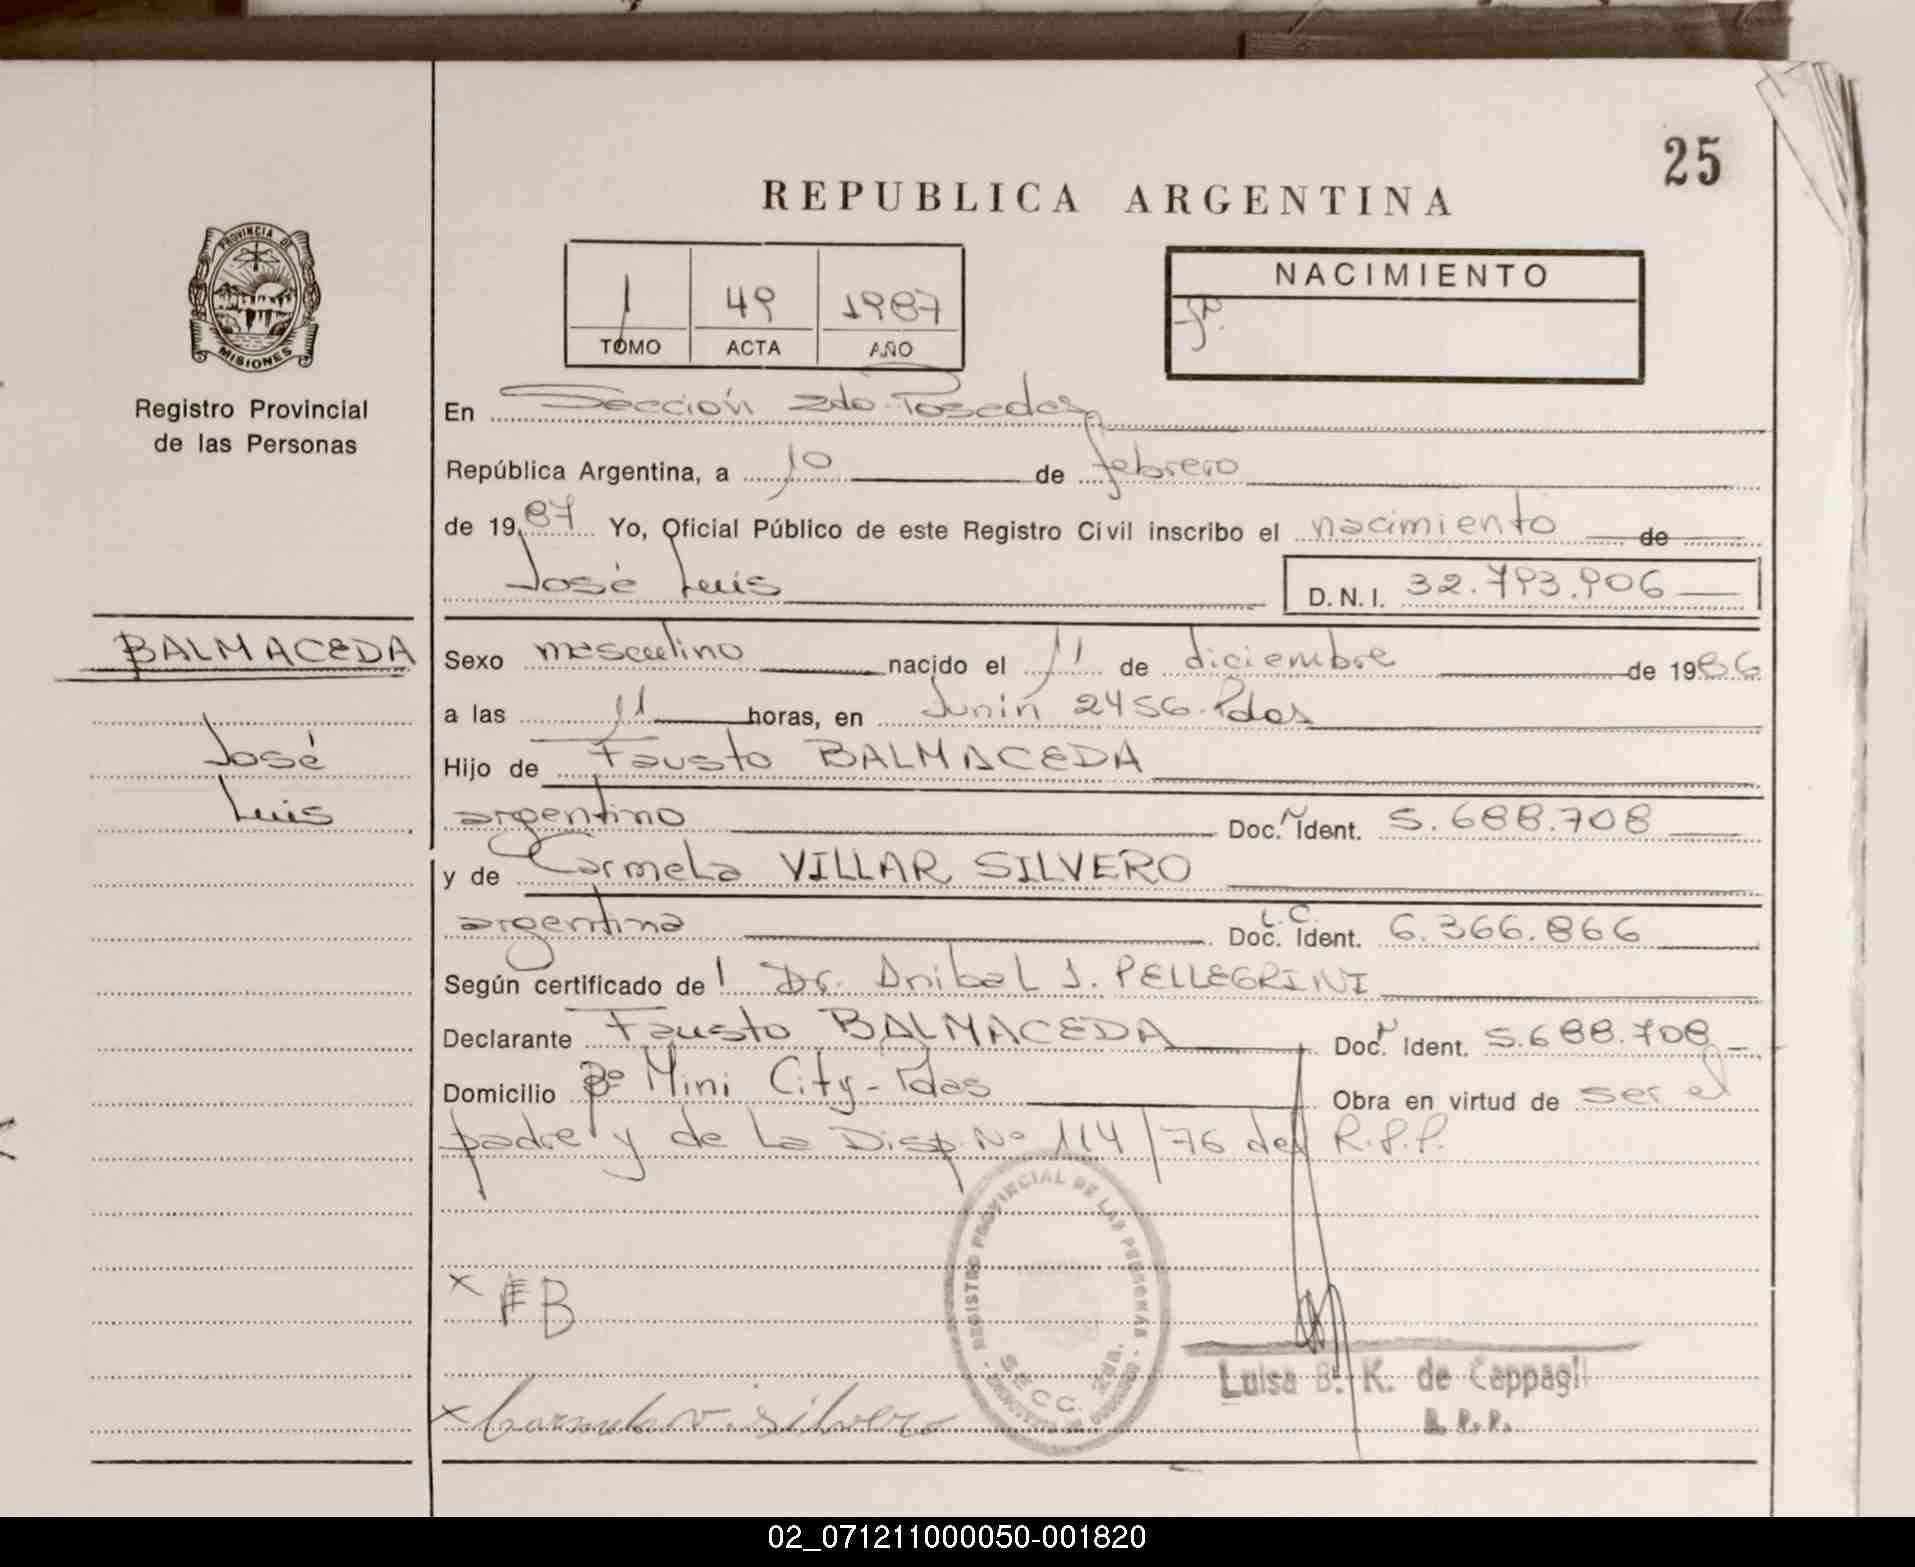 25
REPUBLICA ARGENTINA
PROVINCIA DE
MISIONES
Registro Provincial
de las Personas
1 49 1987
TOMO ACTA AÑO
NACIMIENTO
En Sección 2do. Posadas
República Argentina, a 10 de febrero
de 1987 Yo, Oficial Público de este Registro Civil inscribo el nacimiento de
José Luis D.N.I. 32.793.906
BALMACEDA
José
Luis
Sexo masculino nacido el 11 de diciembre de 1986
a las 11 horas, en Junín 2456. Pdas
Hijo de Fausto BALMACEDA
argentino Doc. Ident. 5.688.708
y de Carmela VILLAR SILVERO
argentina L.C. Doc. Ident. 6.366.866
Según certificado de l Dr. Anibal J. PELLEGRINI
Declarante Fausto BALMACEDA Doc. Ident. 5.688.708
Domicilio Bº Mini City - Pdas Obra en virtud de ser el
padre y de la Disp. Nº 114/76 del R.P.P.
REGISTRO PROVINCIAL DE LAS PERSONAS
SECC. 2da.
x FB
Luisa B. K. de Cappagli
x Carmela v. silvero
02_071211000050-001820